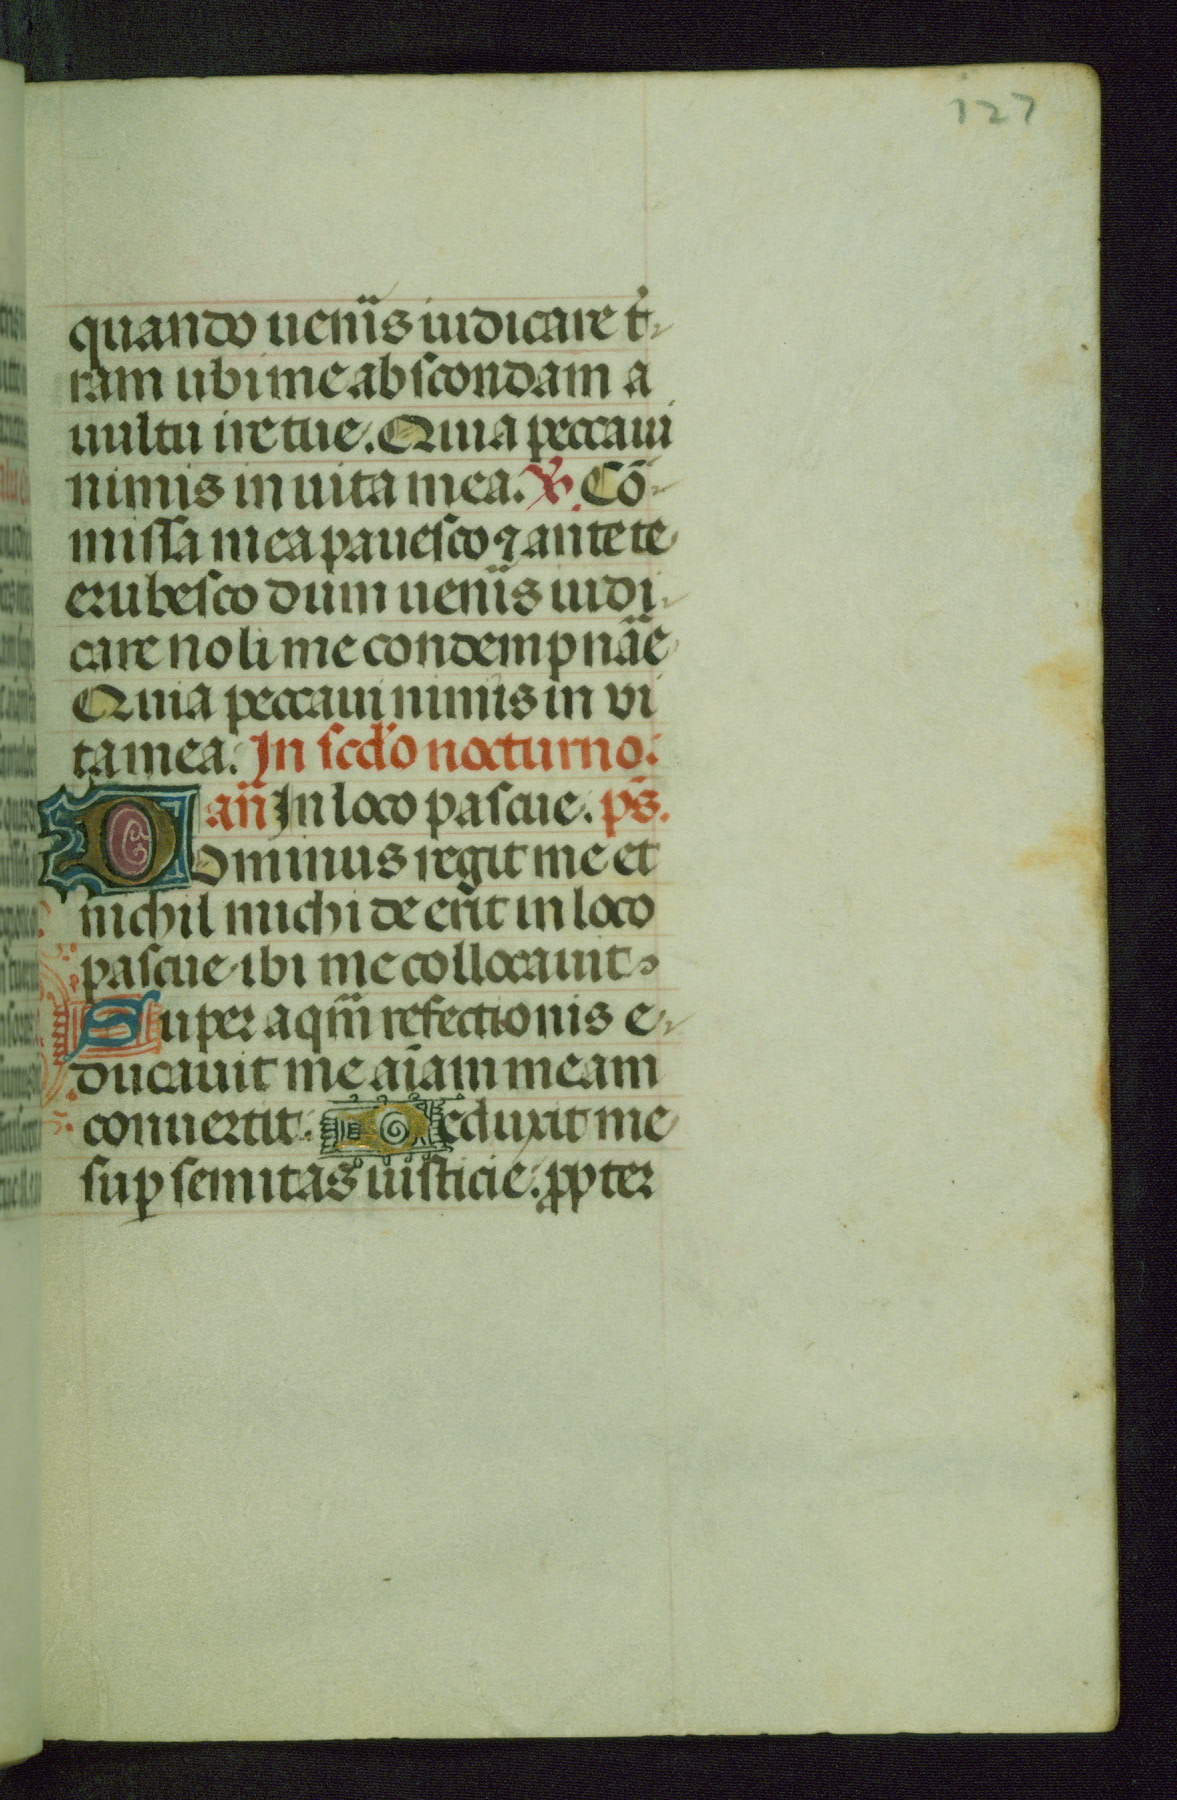 127
quando uenĩs iudicare t̉
ram ubi me abscondam a
uultu ire tue. Quia peccaui
nimis in uita mea. ℣. Cõ
missa mea pauesco ⁊ ante te
erubesco dum uenĩs iudi
care noli me condempnãe
Quia peccaui nimis in vi
ta mea. In scd̾o nocturno.
añ In loco pascue. ps̃.
Dominus regit me et
nichil michi de erit in loco
pascue ibi me collocauit
Super aqm̃ refectionis e
ducauit me aĩam meam
conuertit. Deduxit me
suꝑ semitas iusticie. ꝓpter